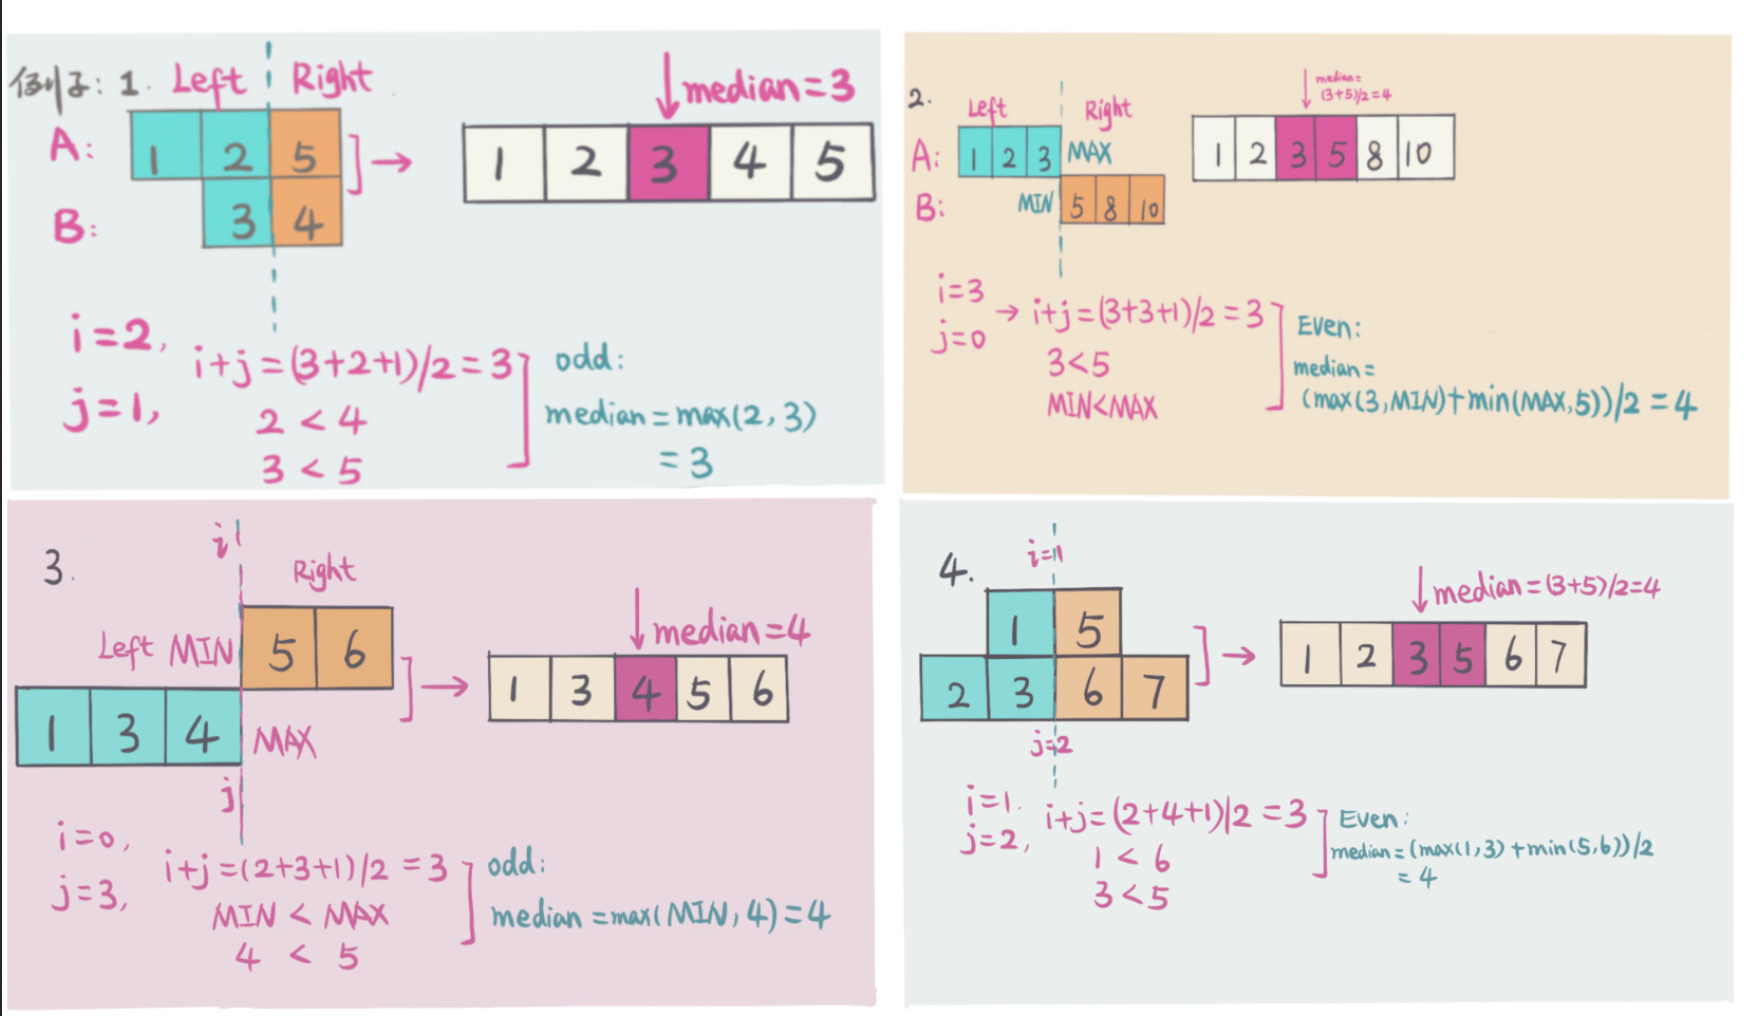 例子: 1.
Left Right
A: 1 2 5
B: 3 4
median=3
1 2 3 4 5
i=2,
j=1,
i+j=(3+2+1)/2=3
2<4
3<5
odd:
median=max(2,3)
=3
2.
Left Right
A: 1 2 3 MAX
B: MIN 5 8 10
median=
(3+5)/2=4
1 2 3 5 8 10
i=3
j=0
→ i+j=(3+3+1)/2=3
3<5
MIN<MAX
Even:
median=
(max(3,MIN)+min(MAX,5))/2=4
3.
i
Right
Left MIN 5 6
1 3 4 MAX
j
median=4
1 3 4 5 6
i=0,
j=3,
i+j=(2+3+1)/2=3
MIN<MAX
4<5
odd:
median=max(MIN,4)=4
4.
i=1
1 5
2 3 6 7
j=2
median=(3+5)/2=4
1 2 3 5 6 7
i=1.
j=2,
i+j=(2+4+1)/2=3
1<6
3<5
Even:
median=(max(1,3)+min(5,6))/2
=4